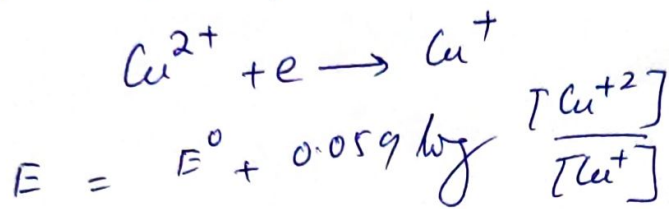 Cu²⁺ + e ⟶ Cu⁺
E = E⁰ + 0.059 log [Cu⁺²]/[Cu⁺]